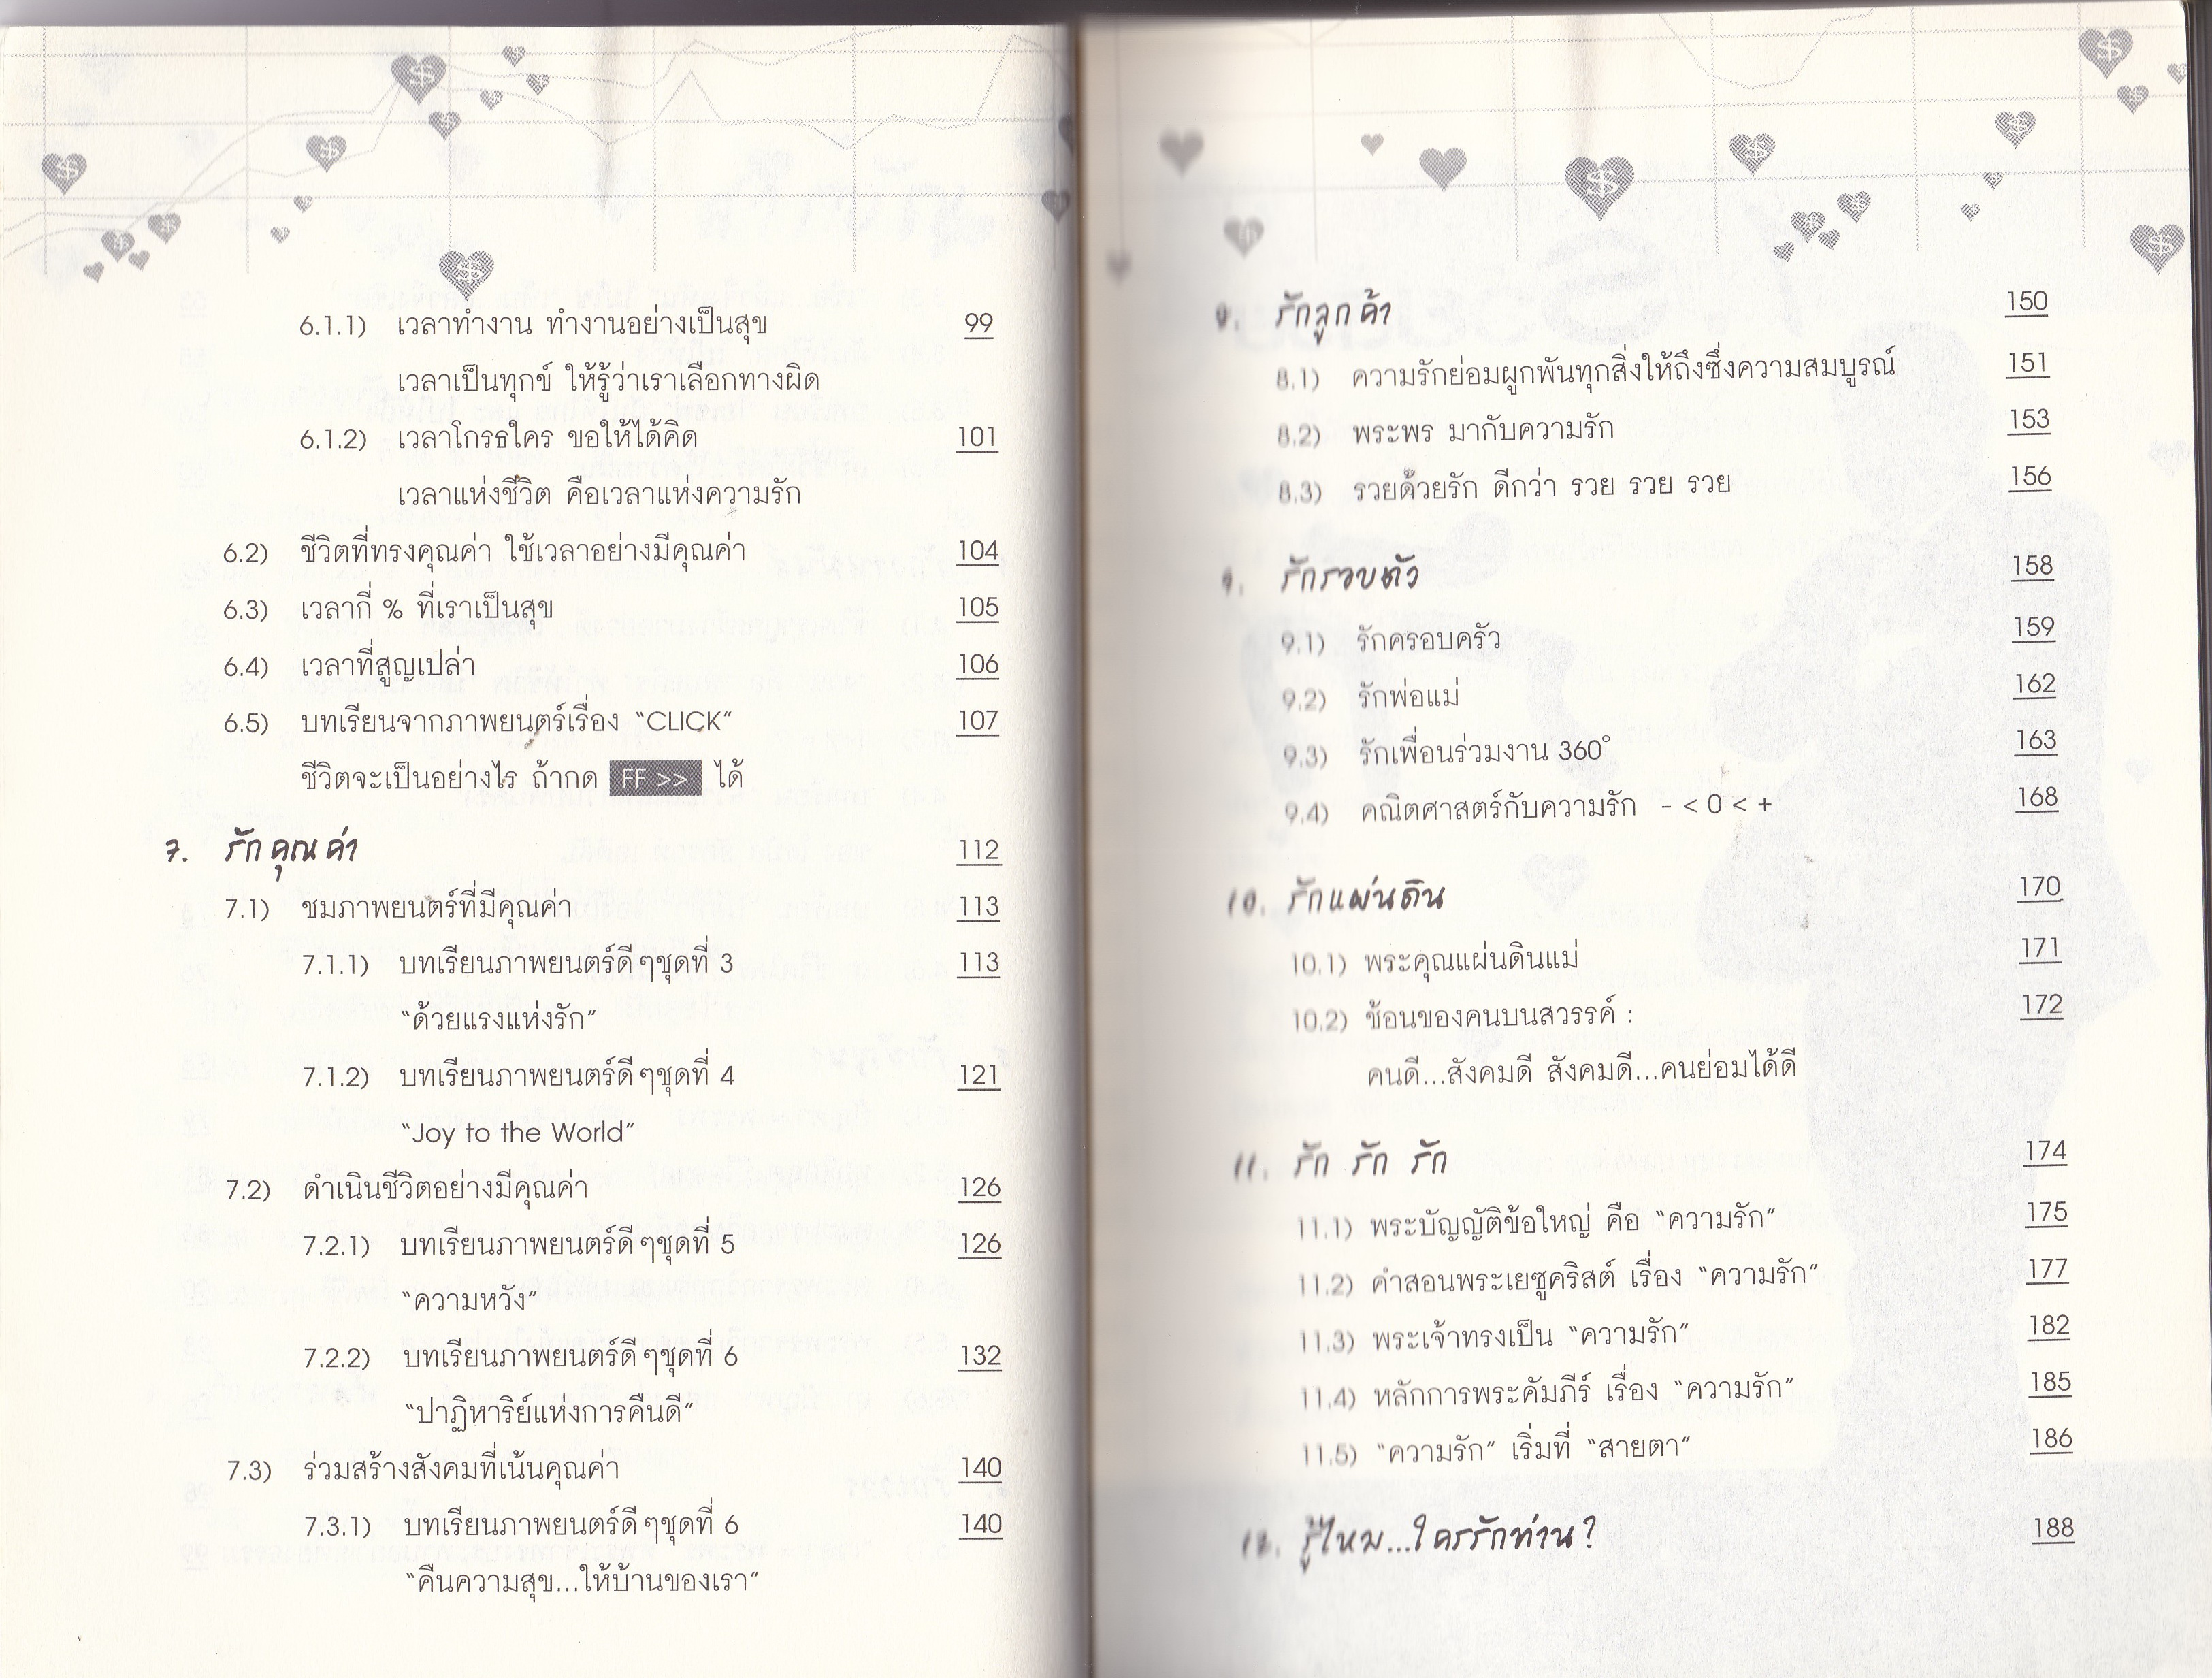 6.1.1) เวลาทำงาน ทำงานอย่างเป็นสุข 99
เวลาเป็นทุกข์ ให้รู้ว่าเราเลือกทางผิด
6.1.2) เวลาโกรธใคร ขอให้ได้คิด 101
เวลาแห่งชีวิต คือเวลาแห่งความรัก
6.2) ชีวิตที่ทรงคุณค่า ใช้เวลาอย่างมีคุณค่า 104
6.3) เวลากี่ % ที่เราเป็นสุข 105
6.4) เวลาที่สูญเปล่า 106
6.5) บทเรียนจากภาพยนตร์เรื่อง “CLICK” 107
ชีวิตจะเป็นอย่างไร ถ้ากด FF >> ได้
7. รักคุณค่า 112
7.1) ชมภาพยนตร์ที่มีคุณค่า 113
7.1.1) บทเรียนภาพยนตร์ดีๆชุดที่ 3 113
“ด้วยแรงแห่งรัก”
7.1.2) บทเรียนภาพยนตร์ดีๆชุดที่ 4 121
“Joy to the World”
7.2) ดำเนินชีวิตอย่างมีคุณค่า 126
7.2.1) บทเรียนภาพยนตร์ดีๆชุดที่ 5 126
“ความหวัง”
7.2.2) บทเรียนภาพยนตร์ดีๆชุดที่ 6 132
“ปาฏิหาริย์แห่งการคืนดี”
7.3) ร่วมสร้างสังคมที่เน้นคุณค่า 140
7.3.1) บทเรียนภาพยนตร์ดีๆชุดที่ 6 140
“คืนความสุข...ให้บ้านของเรา”
8. รักลูกค้า 150
8.1) ความรักย่อมผูกพันทุกสิ่งให้ถึงซึ่งความสมบูรณ์ 151
8.2) พระพร มากับความรัก 153
8.3) รวยด้วยรัก ดีกว่า รวย รวย รวย 156
9. รักรอบตัว 158
9.1) รักครอบครัว 159
9.2) รักพ่อแม่ 162
9.3) รักเพื่อนร่วมงาน 360° 163
9.4) คณิตศาสตร์กับความรัก - < 0 < + 168
10. รักแผ่นดิน 170
10.1) พระคุณแผ่นดินแม่ 171
10.2) ช้อนของคนบนสวรรค์ : 172
คนดี...สังคมดี สังคมดี...คนย่อมได้ดี
11. รัก รัก รัก 174
11.1) พระบัญญัติข้อใหญ่ คือ “ความรัก” 175
11.2) คำสอนพระเยซูคริสต์ เรื่อง “ความรัก” 177
11.3) พระเจ้าทรงเป็น “ความรัก” 182
11.4) หลักการพระคัมภีร์ เรื่อง “ความรัก” 185
11.5) “ความรัก” เริ่มที่ “สายตา” 186
12. รู้ไหม...ใครรักท่าน? 188